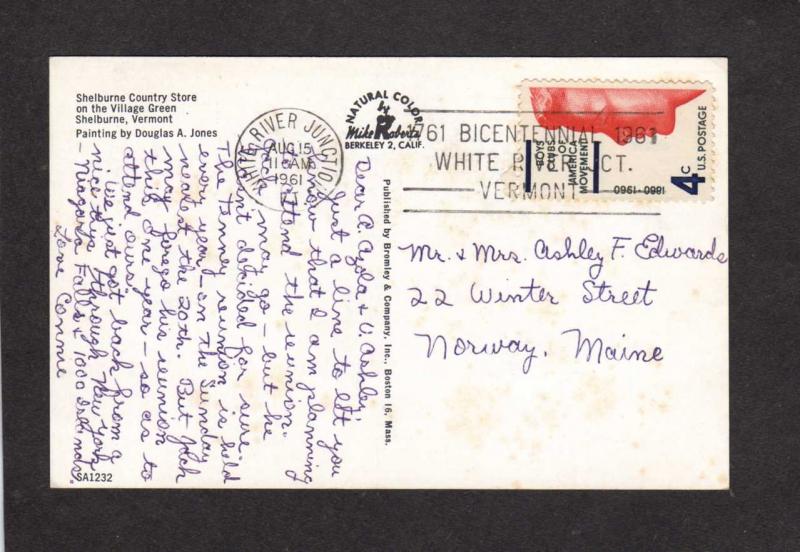 Shelburne Country Store
on the Village Green
Shelburne, Vermont
Painting by Douglas A. Jones
WHITE RIVER JUNCTION
AUG 15
11 AM
1961
VT.
NATURAL COLOR
by
Mike Roberts
BERKELEY 2, CALIF.
1761 BICENTENNIAL 1961
WHITE R. JCT.
VERMONT
BOYS'
CLUBS
OF
AMERICA
MOVEMENT
1860-1960
4c
U.S. POSTAGE
Published by Bromley & Company, Inc., Boston 16, Mass.
Dear A. Ayola & U. Ashley,
Just a line to let you
know that I am planning
to attend the reunion.
Jack may go - but he
isn't decided for sure.
The Tenney reunion is held
every year - on the Sunday
nearest the 20th. But Jack
may forego his reunion
this one year - so as to
attend ours!
We just got back from a
nice trip through New York
- Niagara Falls & 1000 Islands.
Love Connie
Mr. & Mrs. Ashley F. Edwards
22 Winter Street
Norway, Maine
SA1232